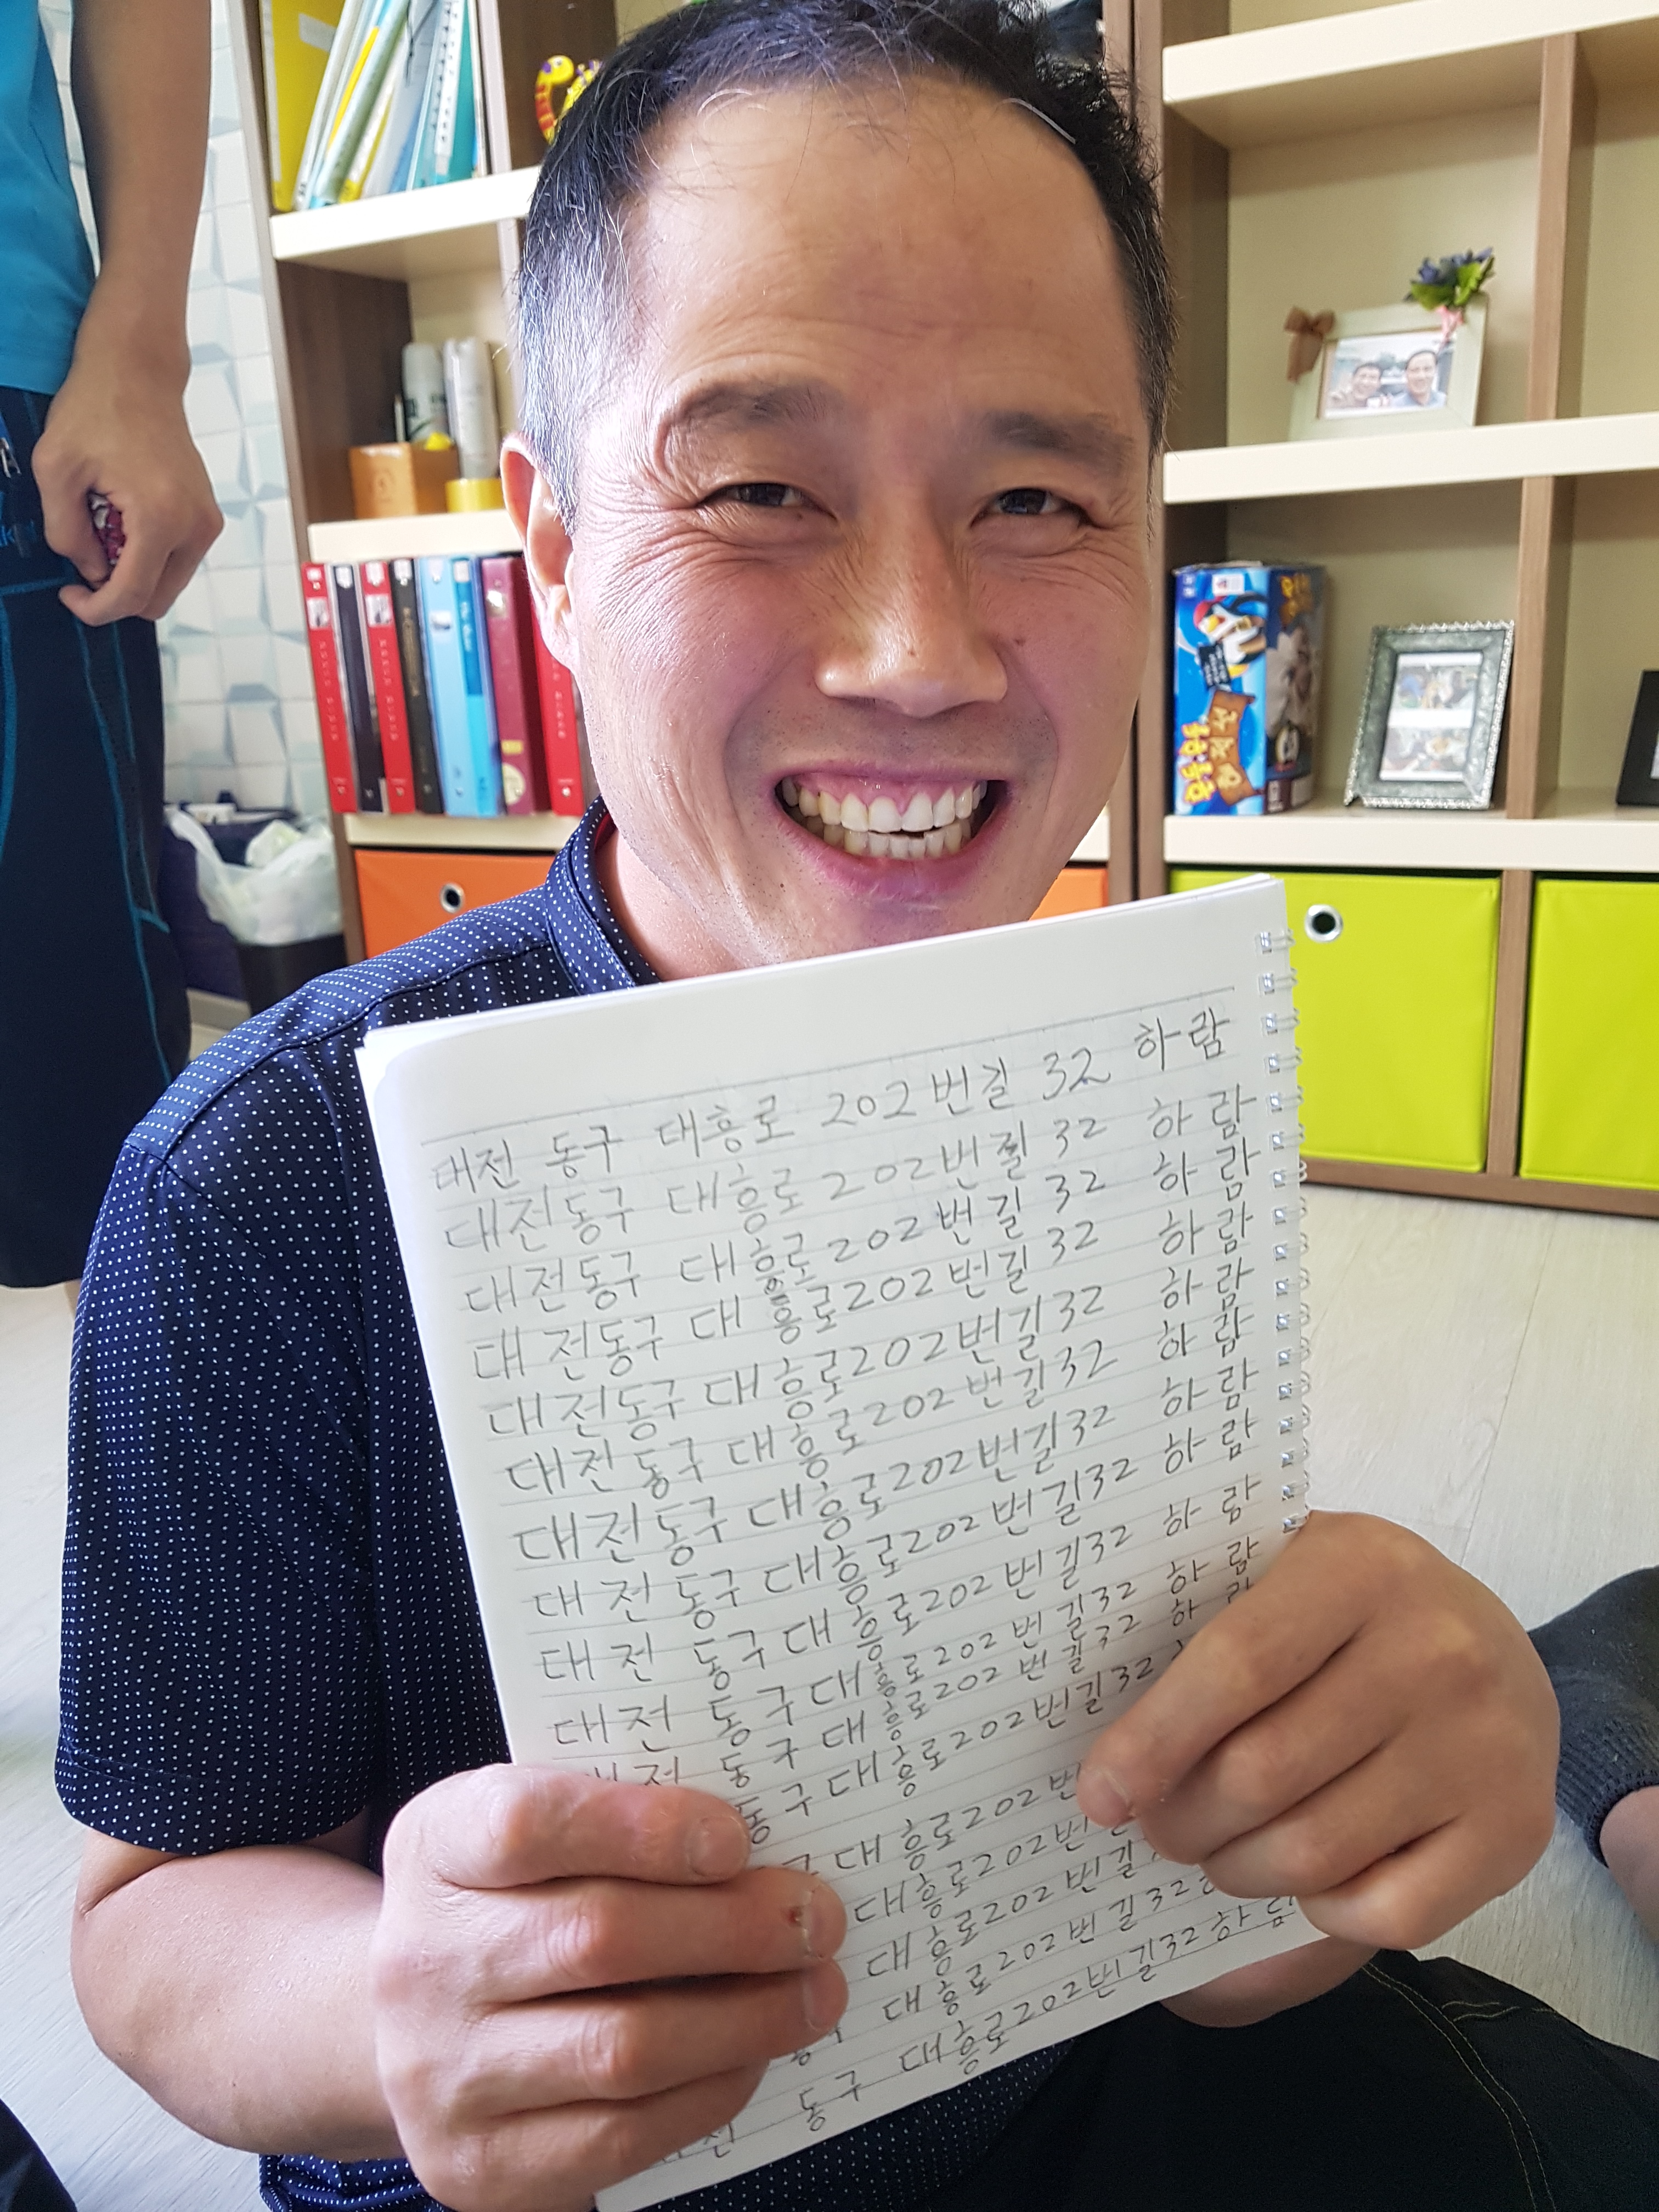 대전 동구 대흥로 202번길 32 하람
대전동구 대흥로 202번길 32 하람
대전동구 대흥로 202번길 32 하람
대전동구 대흥로 202번길 32 하람
대전동구 대흥로 202번길 32 하람
대전동구 대흥로 202 번길 32 하람
대전동구 대흥로 202번길 32 하람
대전 동구 대흥로 202 번길 32 하람
대전 동구 대흥로 202 번길 32 하람
대전 동구 대흥로 202 번길 32 하람
전 동구 대흥로 202 번길 32 하
동구 대흥로 202번길 32
대흥로 202번
대흥로 202번
대흥로 202 번길
대흥로 202번길 32
동구 대흥로 202번길 32 하람